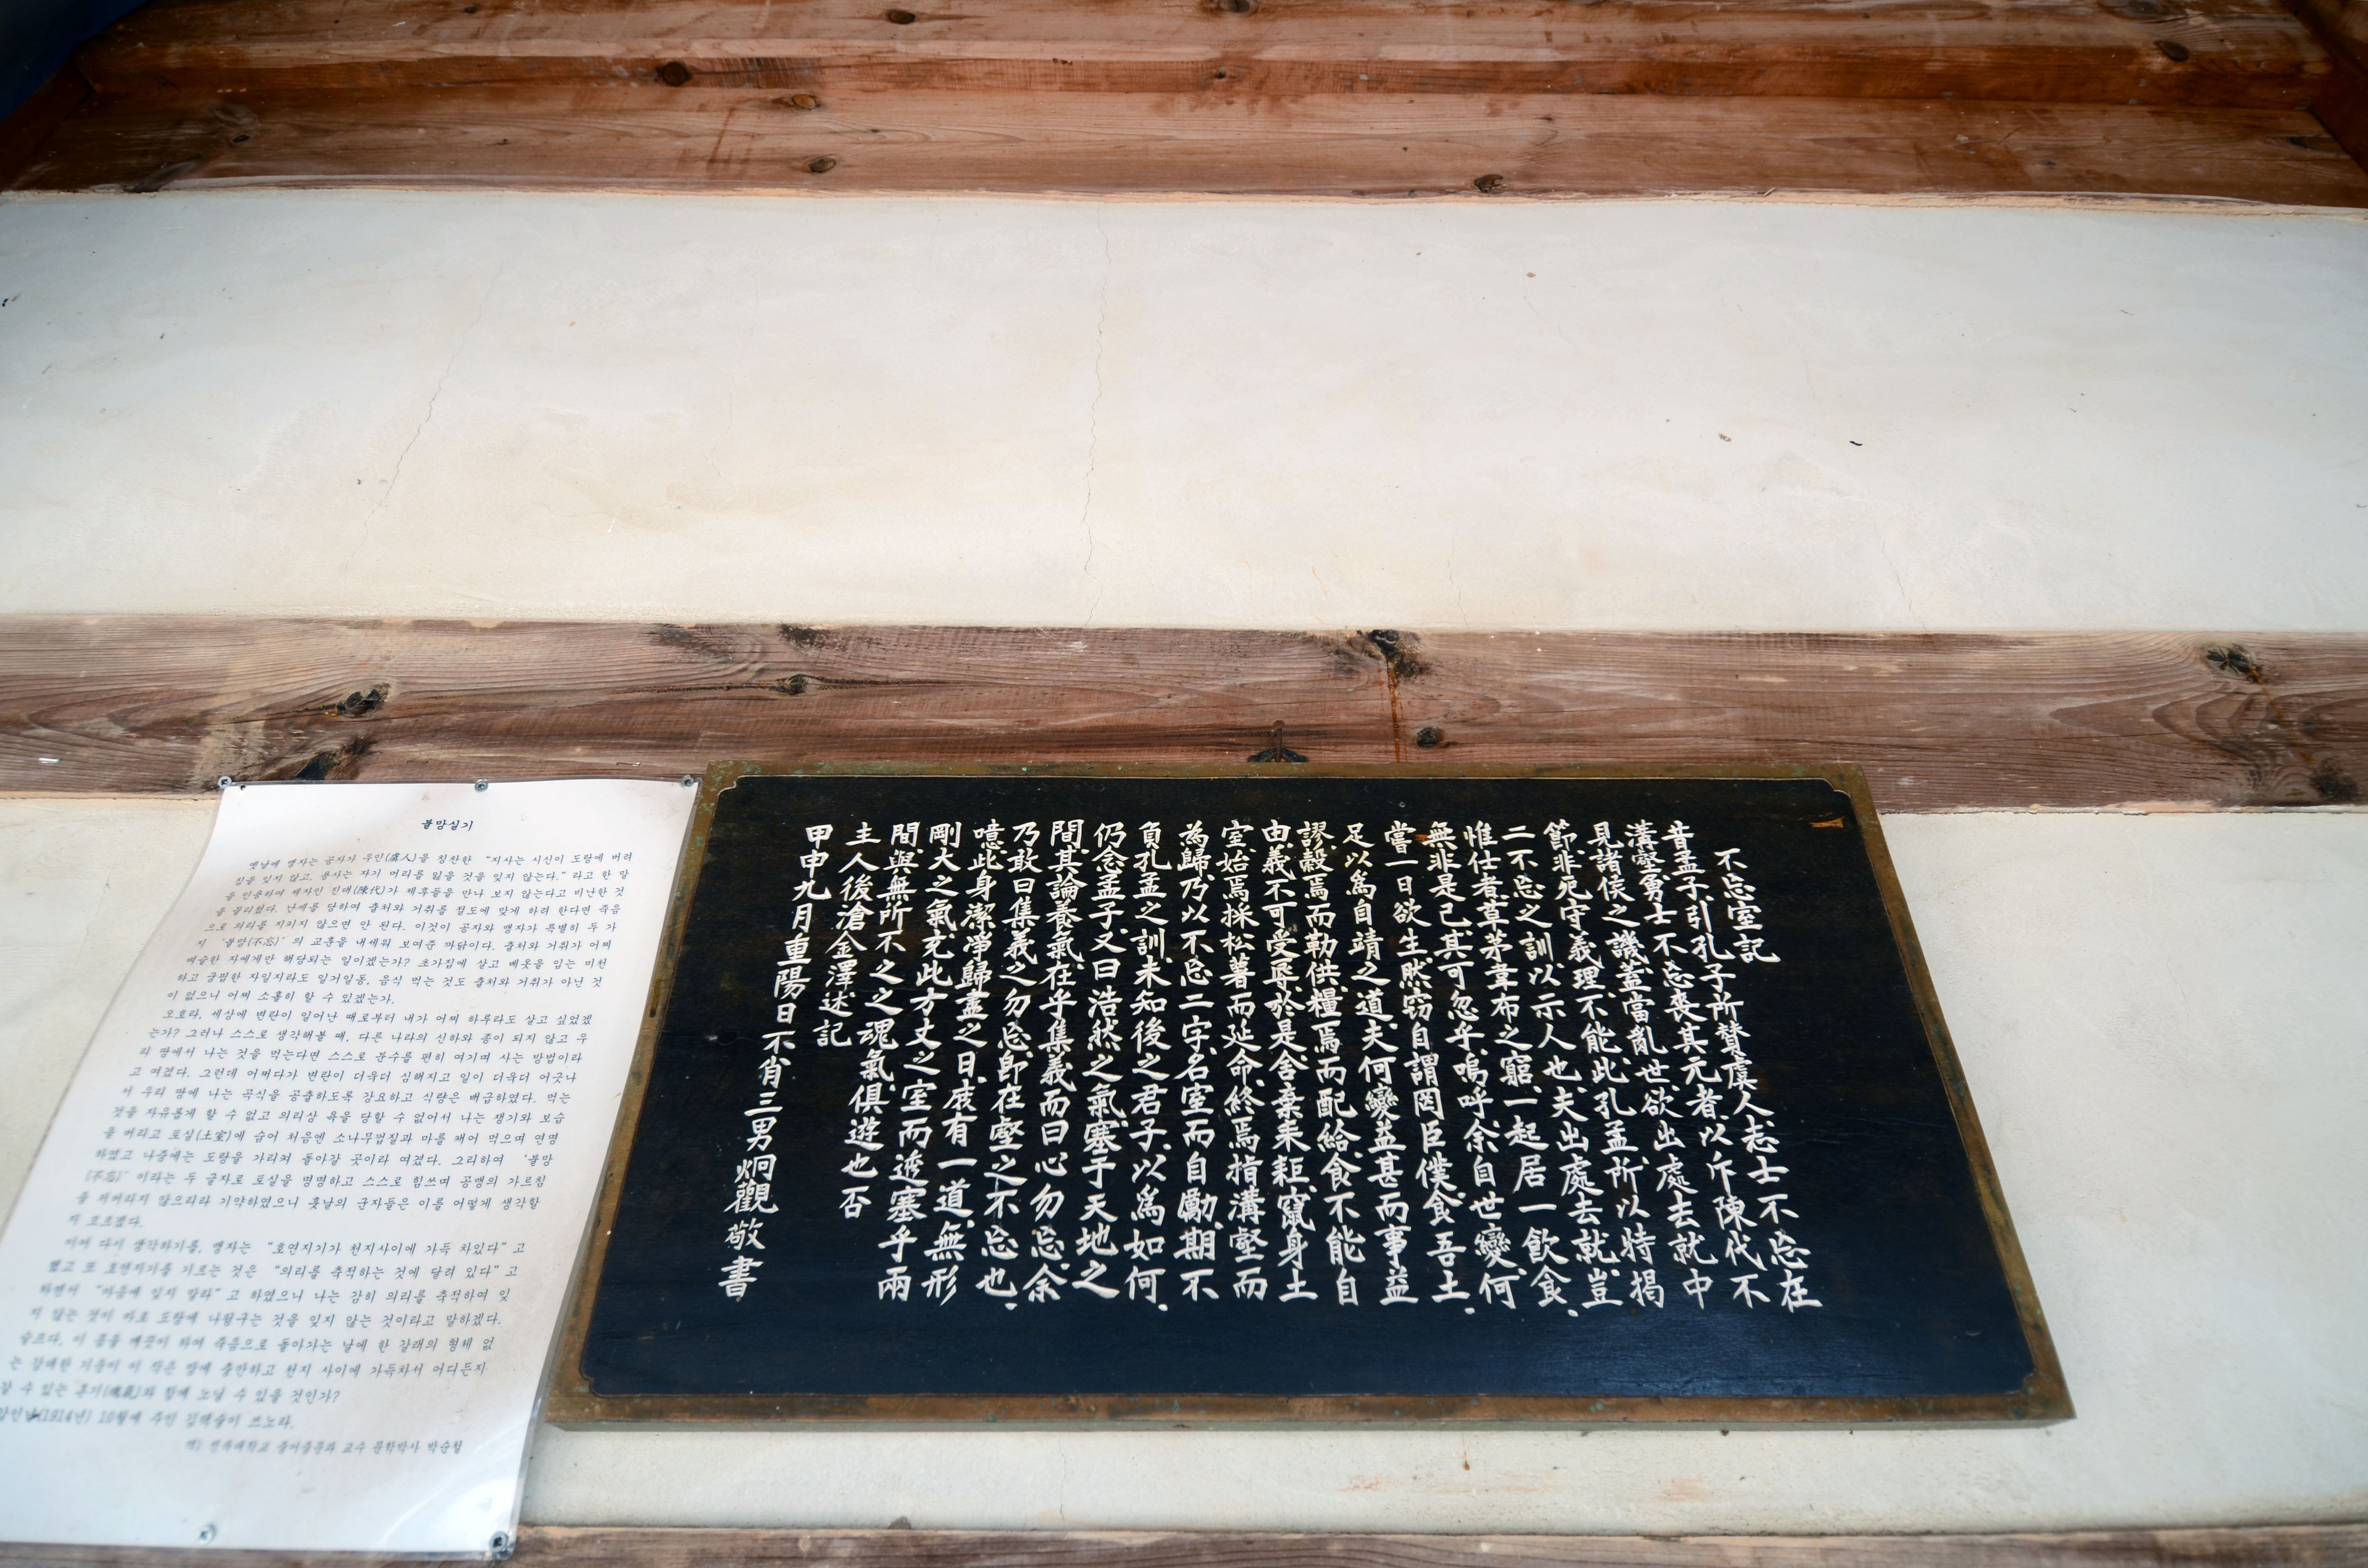 불망실기
옛날에 맹자는 공자가 우인(虞人)을 칭찬한 “지사는 시신이 도랑에 버려
짐을 잊지 않고, 용사는 자기 머리를 잃을 것을 잊지 않는다.” 라고 한 말
을 인용하여 제자인 진대(陳代)가 제후들을 만나 보지 않는다고 비난한 것
을 물리쳤다. 난세를 당하여 출처와 거취를 절도에 맞게 하려 한다면 죽음
으로 의리를 지키지 않으면 안 된다. 이것이 공자와 맹자가 특별히 두 가
지 ‘불망(不忘)’의 교훈을 내세워 보여준 까닭이다. 출처와 거취가 어찌
벼슬한 자에게만 해당되는 일이겠는가? 초가집에 살고 베옷을 입는 미천
하고 궁핍한 자일지라도 일거일동, 음식 먹는 것도 출처와 거취가 아닌 것
이 없으니 어찌 소홀히 할 수 있겠는가.
오호라, 세상에 변란이 일어난 때로부터 내가 어찌 하루라도 살고 싶었겠
는가? 그러나 스스로 생각해볼 때, 다른 나라의 신하와 종이 되지 않고 우
리 땅에서 나는 것을 먹는다면 스스로 분수를 편히 여기며 사는 방법이라
고 여겼다. 그런데 어쩌다가 변란이 더욱더 심해지고 일이 더욱더 어긋나
서 우리 땅에 나는 곡식을 공출하도록 강요하고 식량은 배급하였다. 먹는
것을 자유롭게 할 수 없고 의리상 욕을 당할 수 없어서 나는 쟁기와 보습
을 버리고 토실(土室)에 숨어 처음엔 소나무껍질과 마를 캐어 먹으며 연명
하였고 나중에는 도랑을 가리켜 돌아갈 곳이라 여겼다. 그리하여 ‘불망
(不忘)’이라는 두 글자로 토실을 명명하고 스스로 힘쓰며 공맹의 가르침
을 저버리지 않으리라 기약하였으니 훗날의 군자들은 이를 어떻게 생각할
지 모르겠다.
이에 다시 생각하기를, 맹자는 “호연지기가 천지사이에 가득 차있다” 고
했고 또 호연지기를 기르는 것은 “의리를 축적하는 것에 달려 있다” 고
하면서 “마음에 잊지 말라” 고 하였으니 나는 감히 의리를 축적하여 잊
지 않는 것이 바로 도랑에 나뒹구는 것을 잊지 않는 것이라고 말하겠다.
슬프다, 이 몸을 깨끗이 하여 죽음으로 돌아가는 날에 한 갈래의 형체 없
는 강대한 기운이 이 작은 방에 충만하고 천지 사이에 가득차서 어디든지
갈 수 있는 혼기(魂氣)와 함께 노닐 수 있을 것인가?
(1914년) 10월에 주인 김택술이 쓰노라.
역) 전북대학교 중어중문과 교수 문학박사 박순철
不忘室記
昔孟子引孔子所贊虞人志士不忘在
溝壑勇士不忘喪其元者以斥陳代不
見諸侯之譏盖當亂世欲出處去就中
節非死守義理不能此孔孟所以特揭
二不忘之訓以示人也夫出處去就豈
惟仕者草茅韋布之窮一起居一飮食
無非是已其可忽乎嗚呼余自世變何
嘗一日欲生然窃自謂罔臣僕食吾土
足以爲自靖之道夫何變益甚而事益
謬穀焉而勒供糧焉而配給食不能自
由義不可受辱於是舍棄耒耟竄身土
室始焉採松薯而延命終焉指溝壑而
爲歸乃以不忘二字名室而自勵期不
負孔孟之訓未知後之君子以爲如何
仍念孟子又曰浩然之氣塞于天地之
間其論養氣在乎集義而曰心勿忘余
乃敢曰集義之勿忘卽在壑之不忘也
噫此身潔淨歸盡之日庶有一道無形
剛大之氣充此方丈之室而透塞乎兩
間與無所不之之魂氣俱遊也否
主人後滄金澤述記
甲申九月重陽日不肖三男炯觀敬書